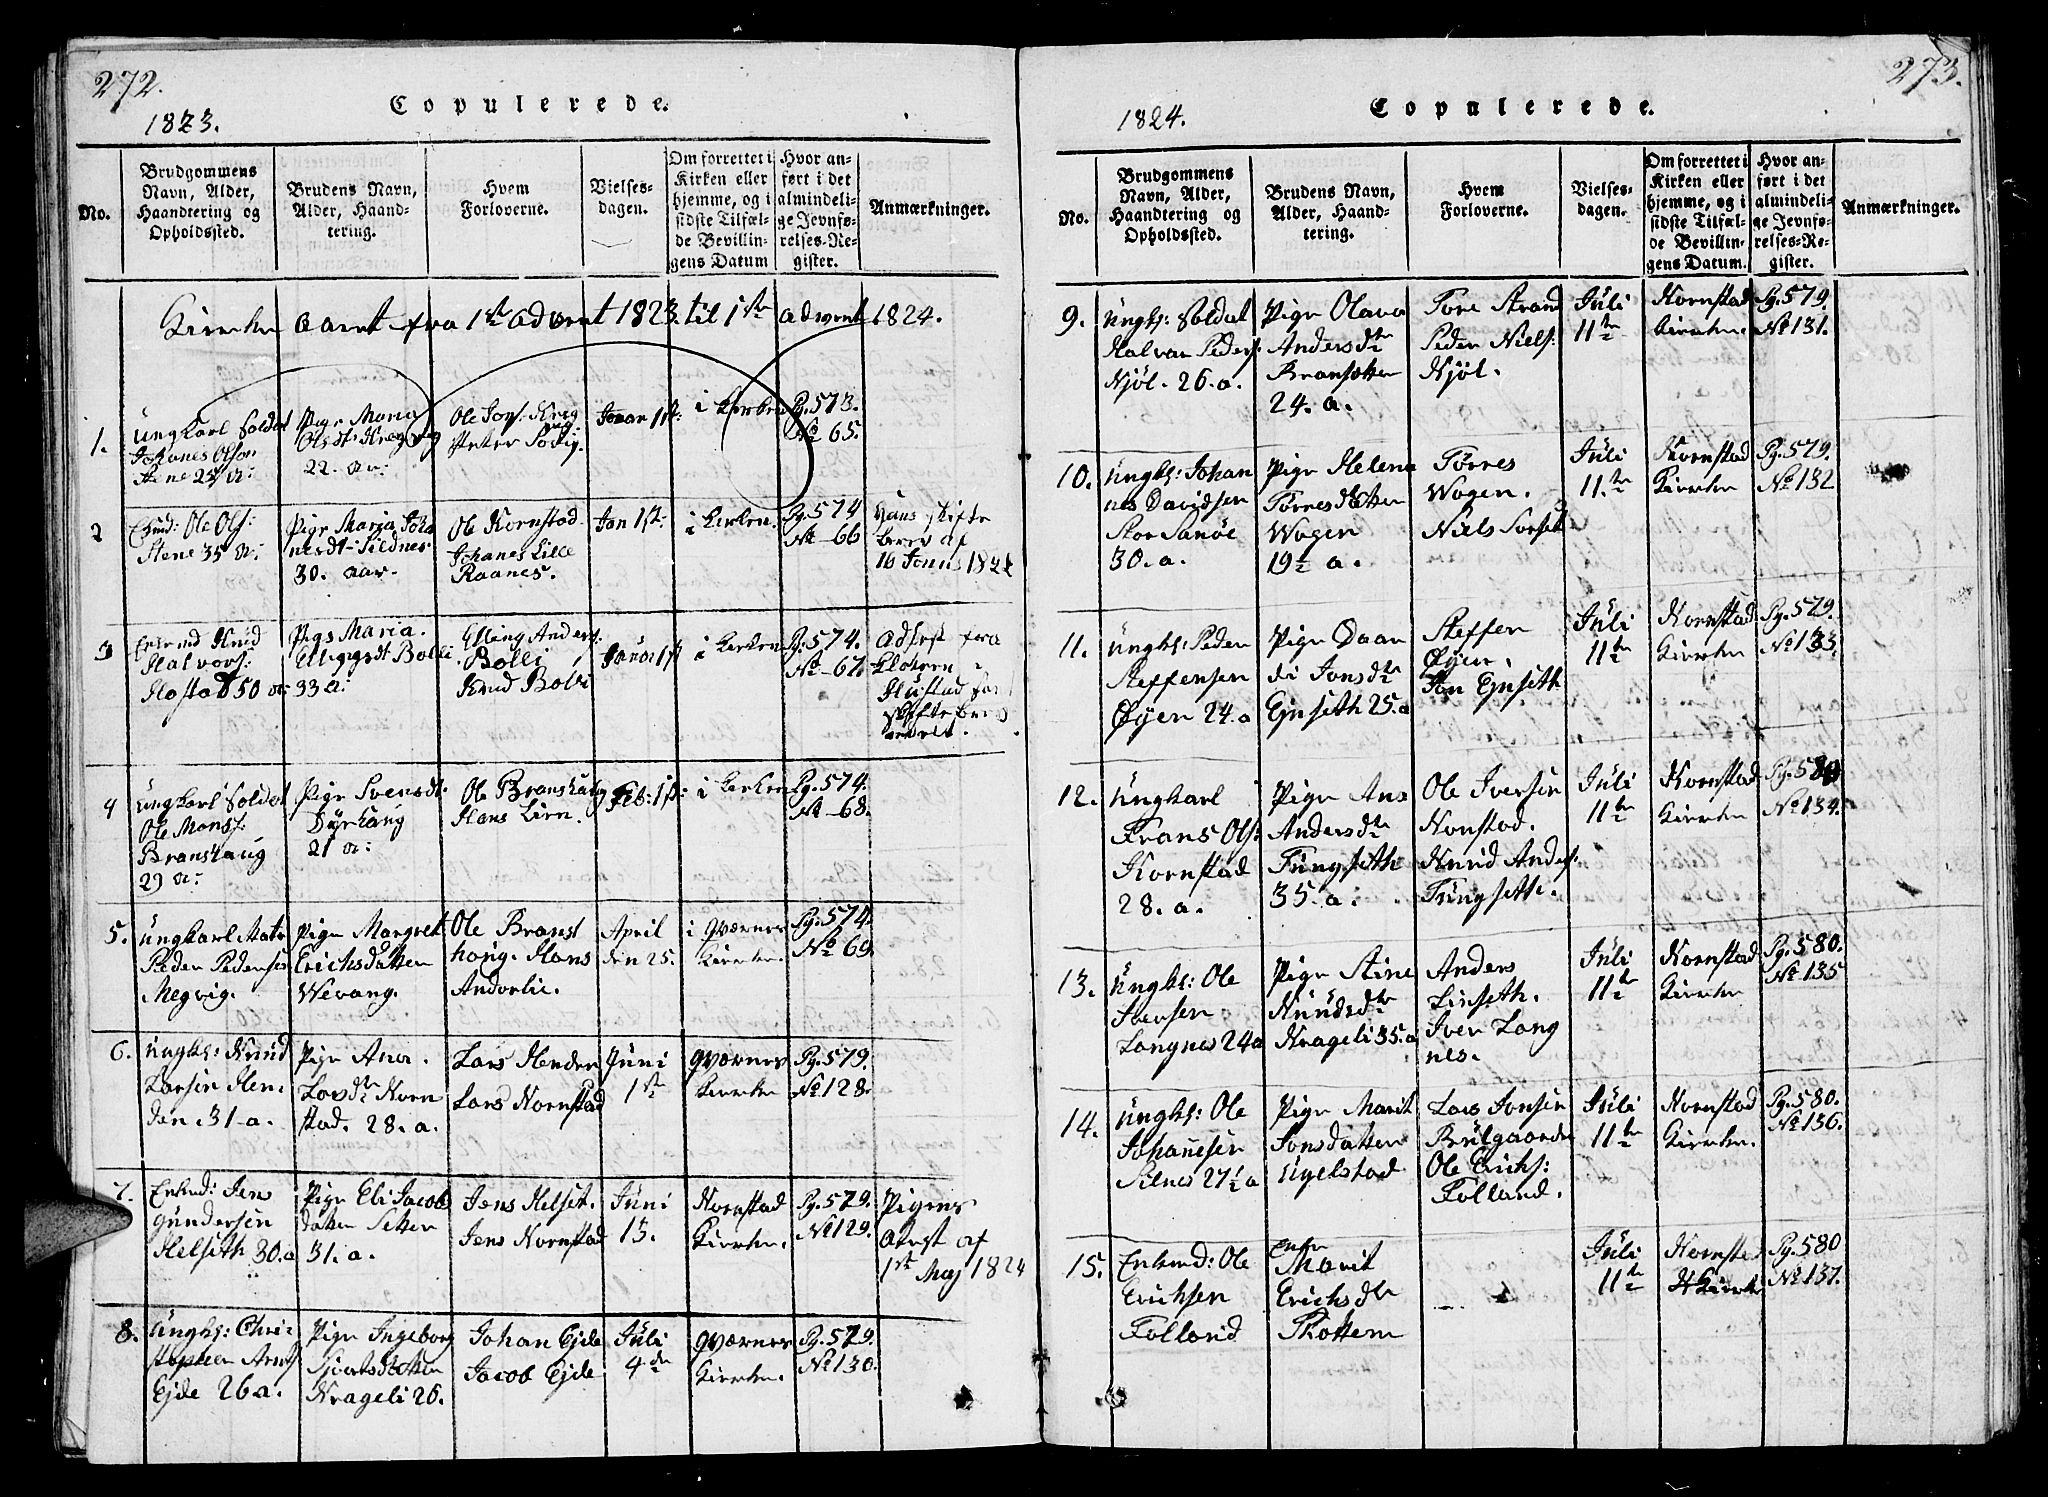 272.
Copulerede.
1823.
No.
Brudgommens Navn, Alder, Haandtering og Opholdssted.
Brudens Navn, Alder, Haandtering.
Hvem Forloverne.
Vielsesdagen.
Om forrettet i Kirken eller hjemme, og i sidste Tilfælde Bevillingens Datum
Hvor anført i det almindelige Jevnførelses-Register.
Anmærkninger.
aaret fra 1ste advent 1823 til 1ste advent 1824.
1.
Ungkarl Soldat
Johanes Olson
Stene
Pige Maria
22. ar:
Januar 1ste:
i Kerken
Pg. 573.
No 65.
2
Ole Ols:
Stene 35 a:
Pige Maria Joha
nesdt: Sildnes
30. aar.
Ole Kornstad
Johanes Lille
Raanes.
Jan 1st:
i Kerken.
Pg. 574
No 66
3
Knud
Halvors:
50 a:
Pige Maria
33 a:
Elling Anders:
Bolli
Knud Bolli
i Kerken
Pg. 574.
No 67
4
Ungkarl Soldat
Ole Mons:
Branshaug
29 a:
Pige
Dyrhaug
21 a:
Ole Branshaug
Hans Lien.
i Kerken
Pg. 574.
No 68.
5.
Ungkarl Matr
Peder Pedersen
Megvig.
Pige Margret
Erichsdatter
Wevang.
Ole Brans
houg. Hans
Andorlie.
April
den 25.
i Qværnes
Kirche.
Pg. 574.
No 69.
6.
Ungks: Knud
Larsen Hen
den 31 a.
Pige Ana
Larsdtr Korn
stad. 28. a.
Lars Henden
Lars Kornstad
Juni
1ste
Qværnes
Kirche
Pg. 579.
No 128.
7.
Enkmd: Jens
Gundersen
Helseth 30. a
Pige Eli Jacobs
datter Setter
31. a.
Jens Helset.
Jens Kornstad
Juni
13.
Kornstad
Kirche.
Pg. 579.
No 129.
Pigens
Attest af
1ste Maj 1824
8.
Ungks: Chri
stopher Arnts
Ejde 26 a.
Pige Ingeborg
Krageli 26.
Johan Ejde
Jacob Ejde
Juli
4.de
Qværnes
Kirche.
Pg. 579.
No 130.
273.
Copulerede.
1824.
No.
Brudgommens Navn, Alder, Haandtering og Opholdssted.
Brudens Navn, Alder, Haandtering.
Hvem Forloverne.
Vielsesdagen.
Om forrettet i Kirken eller hjemme, og i sidste Tilfælde Bevillingens Datum.
Hvor anført i det almindelige Jevnførelses-Register.
Anmærkninger.
9.
Ungks: Soldat
Halvar Peders:
Njöl. 26. a.
Pige Olava
Andersdtr
Bransetter
24. a.
Tore Strand
Peder Niels:
Njöl.
Juli
11te
Kornstad
Kirche.
Pg. 579.
No 131.
10.
Ungks: Johan
nes Davidsen
Stor Sanöe
30. a.
Pige Helena
Torresdatter
Wogen
19½ a.
Torres
Wogen.
Niels Sorset
Juli
11.te
Kornstad
Kirche
Pg. 579.
No 132
11.
Ungks: Peder
Steffensen
Øyen 24. a
Pige Daar
di Jonsdtr
Ejnseth 25. a
Steffen
Øyen.
Jon Ejnseth
Juli
11te
Kornstad
Kirche
Pg. 579.
No 133.
12.
Ungkarl
Frans Ols:
Kornstad
28. a.
Pige Ane
Andersdtr
Fungseth
35. a.
Ole Iversen
Kornstad.
Knud Anders:
Fungseth.
Juli
11te
Kornstad
Kirche
Pg. 580
No 134.
13.
Ungks: Ole
Iversen
Langnes 24 a
Pige Stine
Knudsdtr
Krageli 35. a
Anders
Linseth.
Iver Lang
nes.
Juli
11te
Kornstad
Kirche
Pg. 580.
No 135
14.
Ungks: Ole
Johannesen
Silnes 27½ a
Pige Marit
Jonsdatter
Ugelstad
Lars Jonsen
Bulgaarden
Ole Erichs:
Folland.
Juli
11te
Kornstad
Kirche.
Pg. 580.
No 136.
15.
Enkmd: Ole
Erichsen
Folland
Enke
Marit
Erichsdtr
Skottem
Juli
11te
Kornsta
Kirche
Pg. 580
No 137.